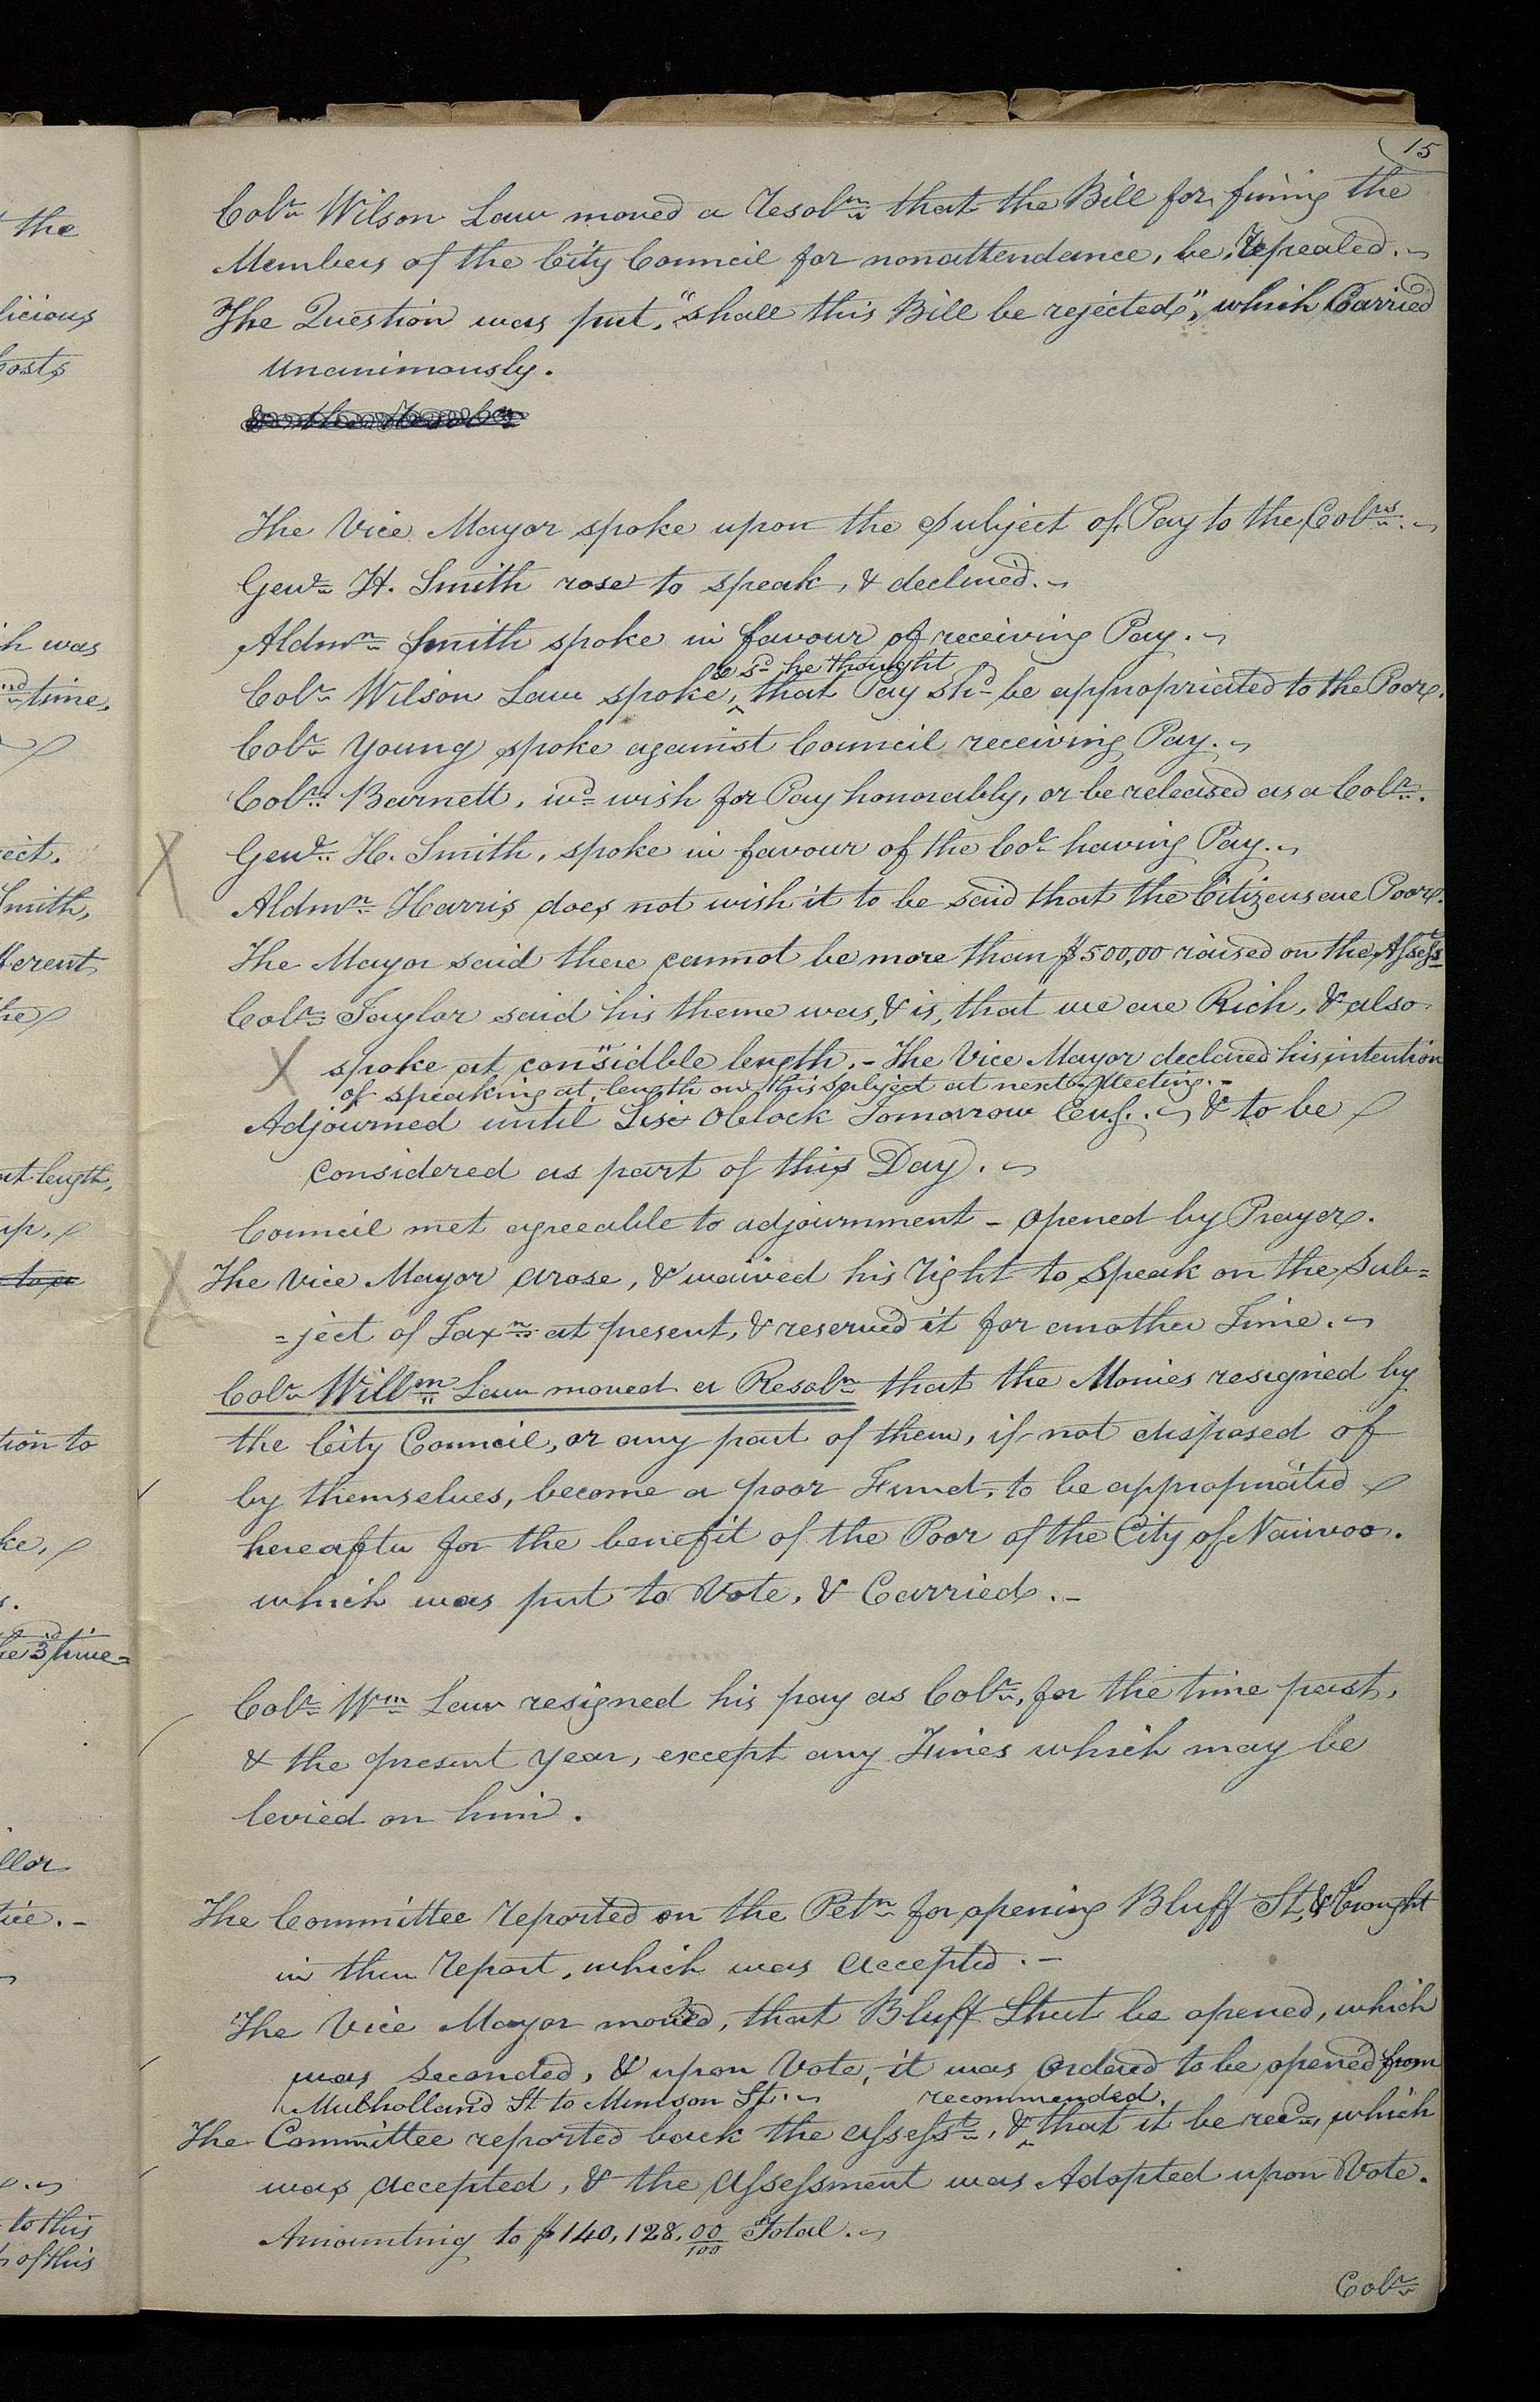 15
Colr Wilson Law moved a Resoln that the Bill for fining the
Members of the City Council for nonattendance, be, Repealed.
The Question was put, "shall this Bill be rejected", which Carried
unanimously.
The Vice Mayor spoke upon the Subject of Pay to the Colrs.
Genl H. Smith rose to speak, & declined.
Aldmn Smith spoke in favour of receiving Pay.
& sd he thought
Colr Wilson Law spoke, ^ that Pay shd be appropriated to the Poor.
Colr Young spoke against Council receiving Pay.
Colr Barnett, wd wish for Pay honorably, or be released as a Colr.
Genl H. Smith, spoke in favour of the Col having Pay.
Aldmn Harris does not wish it to be said that the Citizens are Poor.
The Mayor said there cannot be more than $500,00 raised on the Assesst
Colr Taylor said his theme was, & is, that we are Rich, & also
spoke at considble length. - The Vice Mayor declared his intention
of speaking at length on this subject at next Meeting. -
Adjourned until Six OClock Tomorrow Eveg. & to be
considered as part of this Day.
Council met agreeable to adjournment - opened by Prayer.
The Vice Mayor arose, & waived his right to Speak on the Sub=
=ject of Taxn at present, & reserved it for another Time.
Colr Willm Law moved a Resoln that the Monies resigned by
the City Council, or any part of them, if not disposed of
by themselves, become a poor Fund, to be appropriated
hereafter for the benefit of the Poor of the City of Nauvoo.
which was put to Vote, & Carried. -
Colr Wm Law resigned his pay as Colr, for the time past,
& the present year, except any Fines which may be
levied on him.
The Committee reported on the Petn for opening Bluff St, & brought
in their report, which was accepted. -
The Vice Mayor moved, that Bluff Street be opened, which
was seconded, & upon Vote, it was Ordered to be opened from
Mulholland St to Munson St.
recommended,
The Committee reported back the assesst, & ^ that it be recd, which
was accepted, & the Assessment was Adopted upon Vote.
Amounting to $140,128.00/100 Total.
Colr
the
licious
Costs
h was
time,
ect.
Smith,
fferent
he
at length,
up,
tion to
ke,
s.
he 3d time=
llor
tice. -
to this
of this